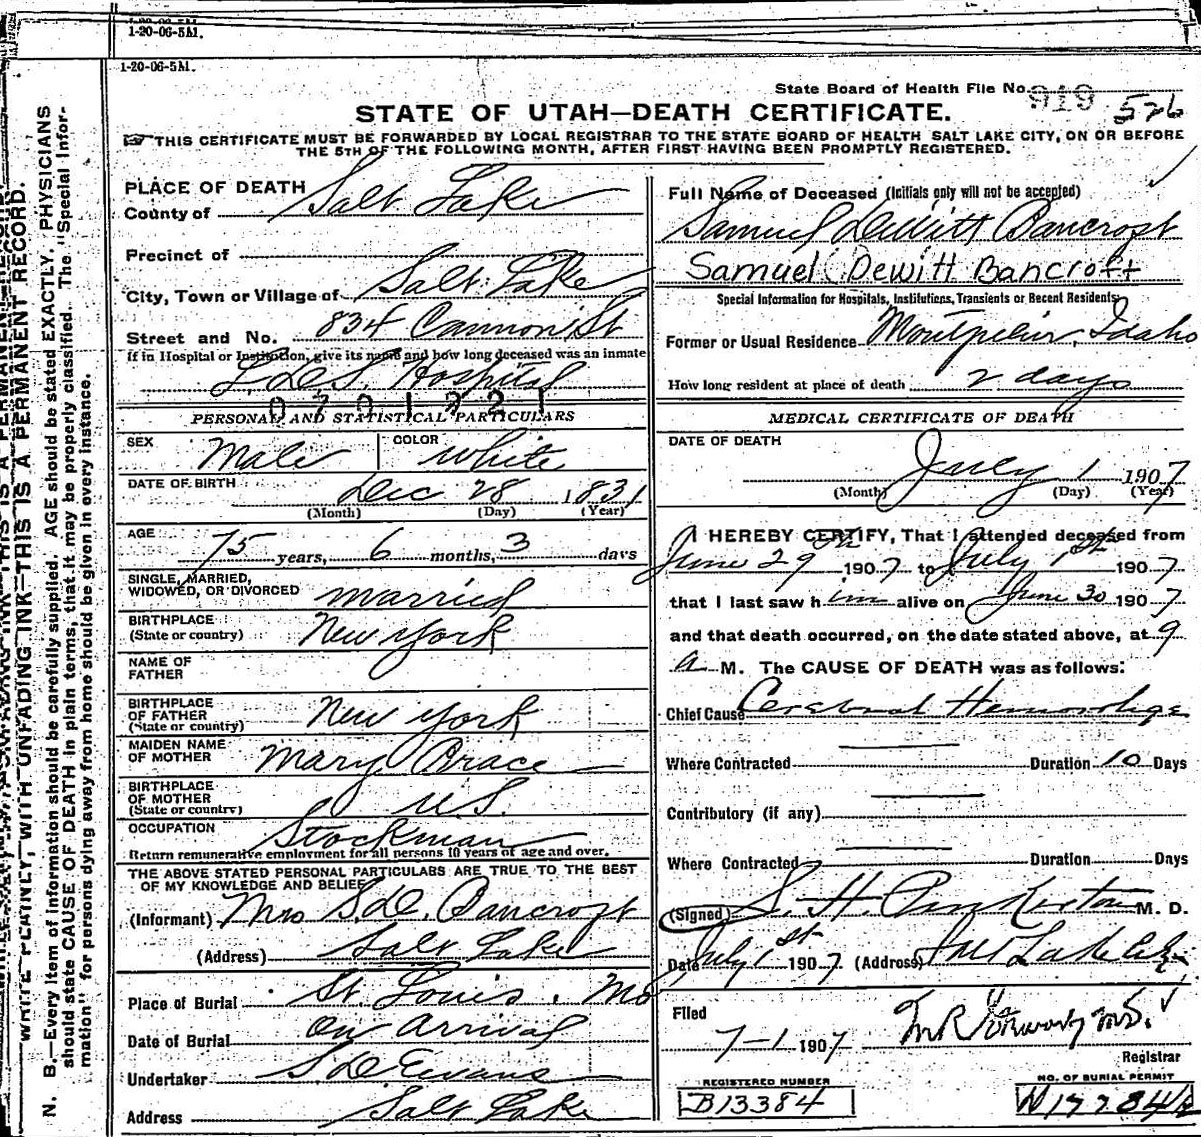 1-20-06-5M.
1-20-06-5M.
State Board of Health File No. 919 526
STATE OF UTAH—DEATH CERTIFICATE.
THIS CERTIFICATE MUST BE FORWARDED BY LOCAL REGISTRAR TO THE STATE BOARD OF HEALTH SALT LAKE CITY, ON OR BEFORE
THE 5TH OF THE FOLLOWING MONTH, AFTER FIRST HAVING BEEN PROMPTLY REGISTERED.
WRITE PLAINLY, WITH UNFADING INK—THIS IS A PERMANENT RECORD.
N. B.—Every item of information should be carefully supplied. AGE should be stated EXACTLY. PHYSICIANS
should state CAUSE OF DEATH in plain terms, that it may be properly classified. The "Special Infor-
mation" for persons dying away from home should be given in every instance.
PLACE OF DEATH
County of Salt Lake
Precinct of
City, Town or Village of Salt Lake
Street and No. 834 Cannon St
if in Hospital or Institution, give its name and how long deceased was an inmate
L.D.S. Hospital
0701221
PERSONAL AND STATISTICAL PARTICULARS
SEX Male COLOR White
DATE OF BIRTH Dec 28 1831
(Month) (Day) (Year)
AGE 75 years, 6 months, 3 days
SINGLE, MARRIED,
WIDOWED, OR DIVORCED married
BIRTHPLACE
(State or country) New York
NAME OF
FATHER
BIRTHPLACE
OF FATHER
(State or country) New York
MAIDEN NAME
OF MOTHER Mary Brace
BIRTHPLACE
OF MOTHER
(State or country) U.S.
OCCUPATION Stockman
Return remunerative employment for all persons 10 years of age and over.
THE ABOVE STATED PERSONAL PARTICULARS ARE TRUE TO THE BEST
OF MY KNOWLEDGE AND BELIEF
(Informant) Mrs S.D. Bancroft
(Address) Salt Lake
Place of Burial St. Louis. Mo
Date of Burial on arrival
Undertaker S D Evans
Address Salt Lake
Full Name of Deceased (Initials only will not be accepted)
Samuel Dewitt Bancroft
Samuel Dewitt Bancroft
Special Information for Hospitals, Institutions, Transients or Recent Residents:
Former or Usual Residence Montpelier, Idaho
How long resident at place of death 2 days
MEDICAL CERTIFICATE OF DEATH
DATE OF DEATH
July 1 1907
(Month) (Day) (Year)
I HEREBY CERTIFY, That I attended deceased from
June 29th 1907 to July 1st 1907
that I last saw him alive on June 30 1907
and that death occurred, on the date stated above, at 9
a M. The CAUSE OF DEATH was as follows:
Chief Cause Cerebral Hemorrhage
Where Contracted Duration 10 Days
Contributory (if any)
Where Contracted Duration Days
(Signed) S. H. Pinkerton M. D.
Date July 1st 1907 (Address) Salt Lake City
Filed
7-1 1907 M.D.
Registrar
REGISTERED NUMBER
B13384
NO. OF BURIAL PERMIT